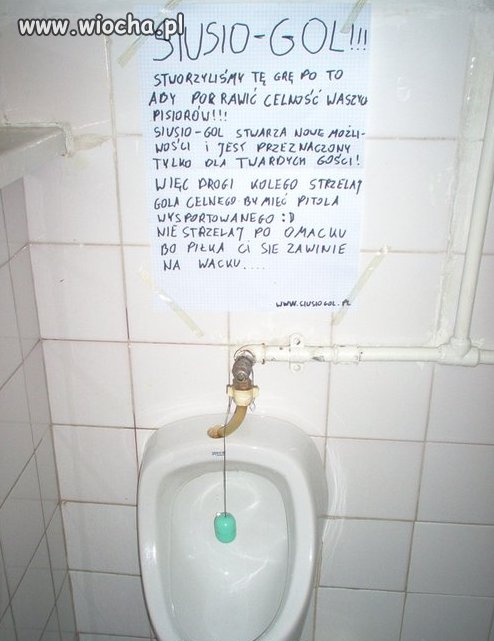 www.wiocha.pl
SIUSIO-GOL!!!
STWORZYLIŚMY TĘ GRĘ PO TO
ABY PORRAWIĆ CELNOŚĆ WASZYCH
PISIORÓW!!!
SIUSIO-GOL STWARZA NOWE MOŻLI-
WOŚCI I JEST PRZEZNACZONY
TYLKO DLA TWARDYCH GOŚCI!
WIĘC DROGI KOLEGO STRZELAJ
GOLA CELNEGO BY MIEĆ PITOLA
WYSPORTOWANEGO :D
NIE STRZELAJ PO OMACKU
BO PIŁKA CI SIE ZAWINIE
NA WACKU....
WWW.SIUSIOGOL.PL